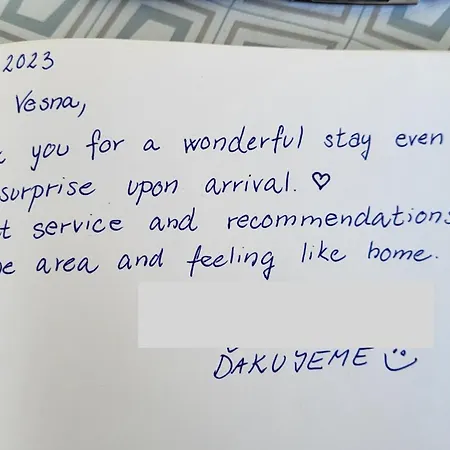 2023
Vesna,
you for a wonderful stay even
surprise upon arrival. ♡
service and recommendations
area and feeling like home.
ĎAKUJEME